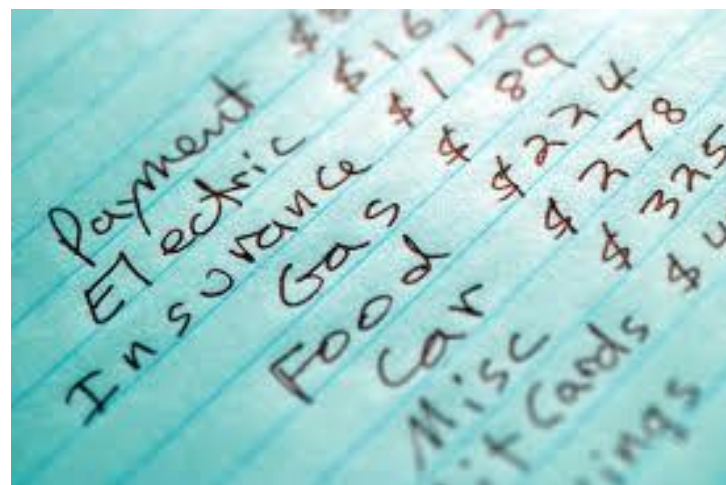 Payment $
Electric $16
Insurance $112
Gas $ 89
Food $224
Car $ 278
Misc $ 325
it Cards $4
ings